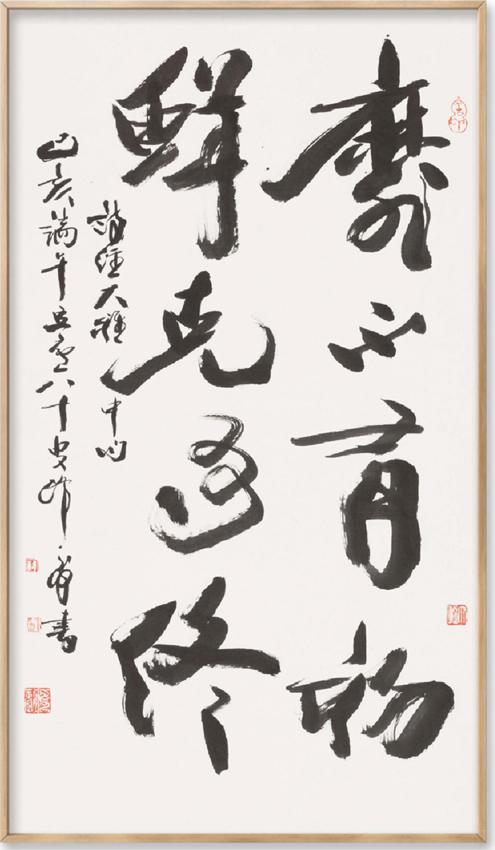 靡不有初
鮮克有終
詩經大雅中句
己亥端午八十叟書